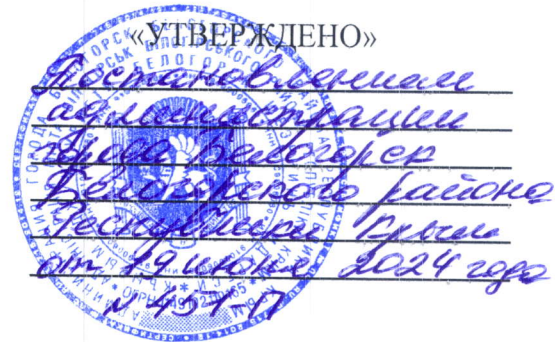 «УТВЕРЖДЕНО»
Постановлением
администрации
города Белогорск
Белогорского района
Республики Крым
от 19 июня 2024 года
N 451-П